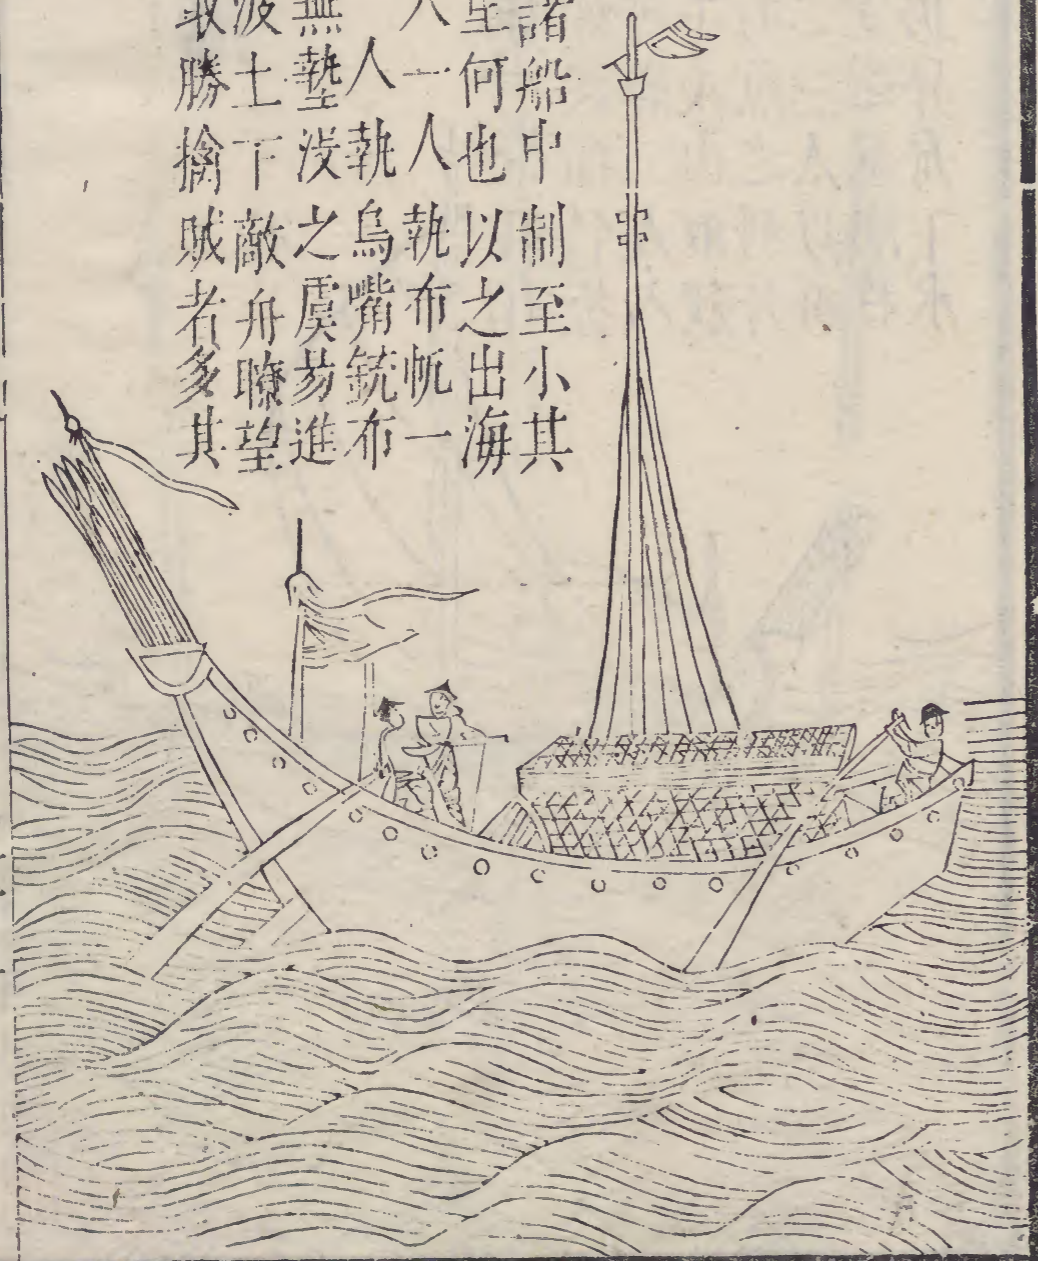 諸船中制至小其
何也以之出海
人一人執布帆一
人執鳥嘴銃布
無墊沒之虞易進
波土下敵舟瞭望
取勝擒賊者多其